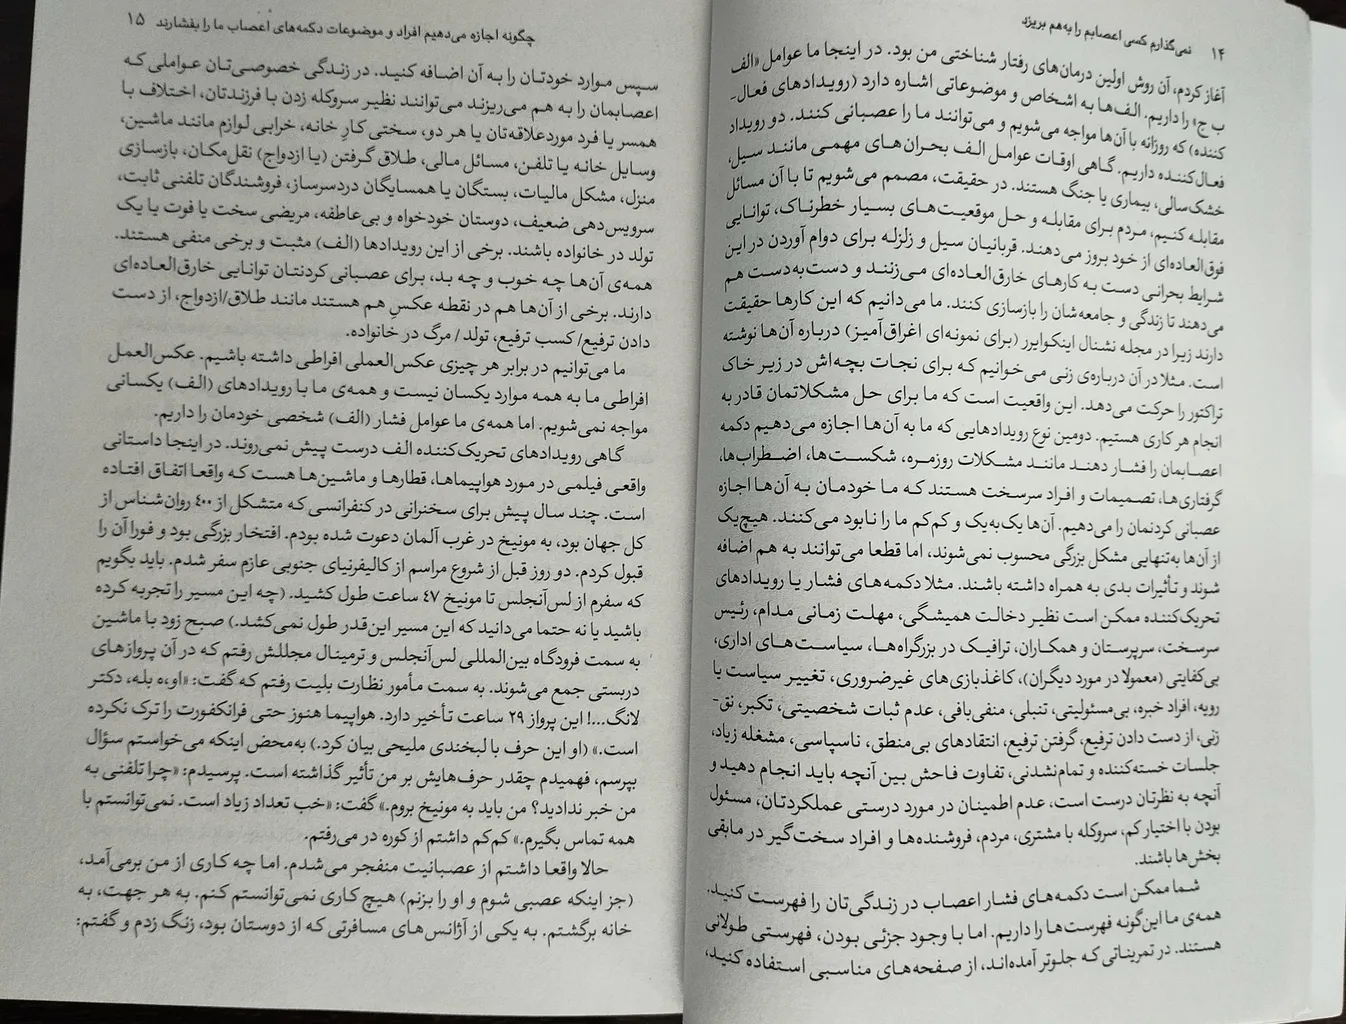 ۱۴ نمی‌گذارم کسی اعصابم را به‌هم بریزد
آغاز کردم، آن روش اولین درمان‌های رفتار شناختی من بود. در اینجا ما عوامل «الف
ب ج» را داریم. الف‌ها به اشخاص و موضوعاتی اشاره دارد (رویدادهای فعال‌ـ
کننده) که روزانه با آن‌ها مواجه می‌شویم و می‌توانند ما را عصبانی کنند. دو رویداد
فعال‌کننده داریم. گاهی اوقات عوامل الف بحران‌های مهمی مانند سیل،
خشک‌سالی، بیماری یا جنگ هستند. در حقیقت، مصمم می‌شویم تا با آن مسائل
مقابله کنیم، مردم برای مقابله و حل موقعیت‌های بسیار خطرناک، توانایی
فوق‌العاده‌ای از خود بروز می‌دهند. قربانیان سیل و زلزله برای دوام آوردن در این
شرایط بحرانی دست به کارهای خارق‌العاده‌ای می‌زنند و دست‌به‌دست هم
می‌دهند تا زندگی و جامعه‌شان را بازسازی کنند. ما می‌دانیم که این کارها حقیقت
دارند زیرا در مجله نشنال اینکوایرر (برای نمونه‌ای اغراق‌آمیز) درباره آن‌ها نوشته
است. مثلا در آن درباره‌ی زنی می‌خوانیم که برای نجات بچه‌اش در زیر خاک
تراکتور را حرکت می‌دهد. این واقعیت است که ما برای حل مشکلاتمان قادر به
انجام هر کاری هستیم. دومین نوع رویدادهایی که ما به آن‌ها اجازه می‌دهیم دکمه
اعصابمان را فشار دهند مانند مشکلات روزمره، شکست‌ها، اضطراب‌ها،
گرفتاری‌ها، تصمیمات و افراد سرسخت هستند که ما خودمان به آن‌ها اجازه
عصبانی کردنمان را می‌دهیم. آن‌ها یک‌به‌یک و کم‌کم ما را نابود می‌کنند. هیچ‌یک
از آن‌ها به‌تنهایی مشکل بزرگی محسوب نمی‌شوند، اما قطعا می‌توانند به هم اضافه
شوند و تأثیرات بدی به همراه داشته باشند. مثلا دکمه‌های فشار یا رویدادهای
تحریک‌کننده ممکن است نظیر دخالت همیشگی، مهلت زمانی مدام، رئیس
سرسخت، سرپرستان و همکاران، ترافیک در بزرگراه‌ها، سیاست‌های اداری،
بی‌کفایتی (معمولا در مورد دیگران)، کاغذبازی‌های غیرضروری، تغییر سیاست یا
رویه، افراد خبره، بی‌مسئولیتی، تنبلی، منفی‌بافی، عدم ثبات شخصیتی، تکبر، نق-
زنی، از دست دادن ترفیع، گرفتن ترفیع، انتقادهای بی‌منطق، ناسپاسی، مشغله زیاد،
جلسات خسته‌کننده و تمام‌نشدنی، تفاوت فاحش بین آنچه باید انجام دهید و
آنچه به نظرتان درست است، عدم اطمینان در مورد درستی عملکردتان، مسئول
بودن با اختیار کم، سروکله با مشتری، مردم، فروشنده‌ها و افراد سخت‌گیر در مابقی
بخش‌ها باشند.
شما ممکن است دکمه‌های فشار اعصاب در زندگی‌تان را فهرست کنید.
همه‌ی ما این‌گونه فهرست‌ها را داریم. اما با وجود جزئی بودن، فهرستی طولانی
هستند. در تمریناتی که جلوتر آمده‌اند، از صفحه‌های مناسبی استفاده کنید،
چگونه اجازه می‌دهیم افراد و موضوعات دکمه‌های اعصاب ما را بفشارند ۱۵
سپس موارد خودتان را به آن اضافه کنید. در زندگی خصوصی‌تان عواملی که
اعصابمان را به هم می‌ریزند می‌توانند نظیر سروکله زدن با فرزندتان، اختلاف با
همسر یا فرد موردعلاقه‌تان یا هر دو، سختی کارِ خانه، خرابی لوازم مانند ماشین،
وسایل خانه یا تلفن، مسائل مالی، طلاق گرفتن (یا ازدواج) نقل‌مکان، بازسازی
منزل، مشکل مالیات، بستگان یا همسایگان دردسرساز، فروشندگان تلفنی ثابت،
سرویس‌دهی ضعیف، دوستان خودخواه و بی‌عاطفه، مریضی سخت یا فوت یا یک
تولد در خانواده باشند. برخی از این رویدادها (الف) مثبت و برخی منفی هستند.
همه‌ی آن‌ها چه خوب و چه بد، برای عصبانی کردنتان توانایی خارق‌العاده‌ای
دارند. برخی از آن‌ها هم در نقطه عکسِ هم هستند مانند طلاق/ازدواج، از دست
دادن ترفیع/ کسب ترفیع، تولد / مرگ در خانواده.
ما می‌توانیم در برابر هر چیزی عکس‌العملی افراطی داشته باشیم. عکس‌العمل
افراطی ما به همه موارد یکسان نیست و همه‌ی ما با رویدادهای (الف) یکسانی
مواجه نمی‌شویم. اما همه‌ی ما عوامل فشار (الف) شخصی خودمان را داریم.
گاهی رویدادهای تحریک‌کننده الف درست پیش نمی‌روند. در اینجا داستانی
واقعی فیلمی در مورد هواپیماها، قطارها و ماشین‌ها هست که واقعا اتفاق افتاده
است. چند سال پیش برای سخنرانی در کنفرانسی که متشکل از ۴۰۰ روان‌شناس از
کل جهان بود، به مونیخ در غرب آلمان دعوت شده بودم. افتخار بزرگی بود و فورا آن را
قبول کردم. دو روز قبل از شروع مراسم از کالیفرنیای جنوبی عازم سفر شدم. باید بگویم
که سفرم از لس‌آنجلس تا مونیخ ۴۷ ساعت طول کشید. (چه این مسیر را تجربه کرده
باشید یا نه حتما می‌دانید که این مسیر این‌قدر طول نمی‌کشد.) صبح زود با ماشین
به سمت فرودگاه بین‌المللی لس‌آنجلس و ترمینال مجللش رفتم که در آن پروازهای
دربستی جمع می‌شوند. به سمت مأمور نظارت بلیت رفتم که گفت: «او،ه بله، دکتر
لانگ...! این پرواز ۲۹ ساعت تأخیر دارد. هواپیما هنوز حتی فرانکفورت را ترک نکرده
است.» (او این حرف با لبخندی ملیحی بیان کرد.) به‌محض اینکه می‌خواستم سؤال
بپرسم، فهمیدم چقدر حرف‌هایش بر من تأثیر گذاشته است. پرسیدم: «چرا تلفنی به
من خبر ندادید؟ من باید به مونیخ بروم.» گفت: «خب تعداد زیاد است. نمی‌توانستم با
همه تماس بگیرم.» کم‌کم داشتم از کوره در می‌رفتم.
حالا واقعا داشتم از عصبانیت منفجر می‌شدم. اما چه کاری از من برمی‌آمد،
(جز اینکه عصبی شوم و او را بزنم) هیچ کاری نمی‌توانستم کنم. به هر جهت، به
خانه برگشتم. به یکی از آژانس‌های مسافرتی که از دوستان بود، زنگ زدم و گفتم: